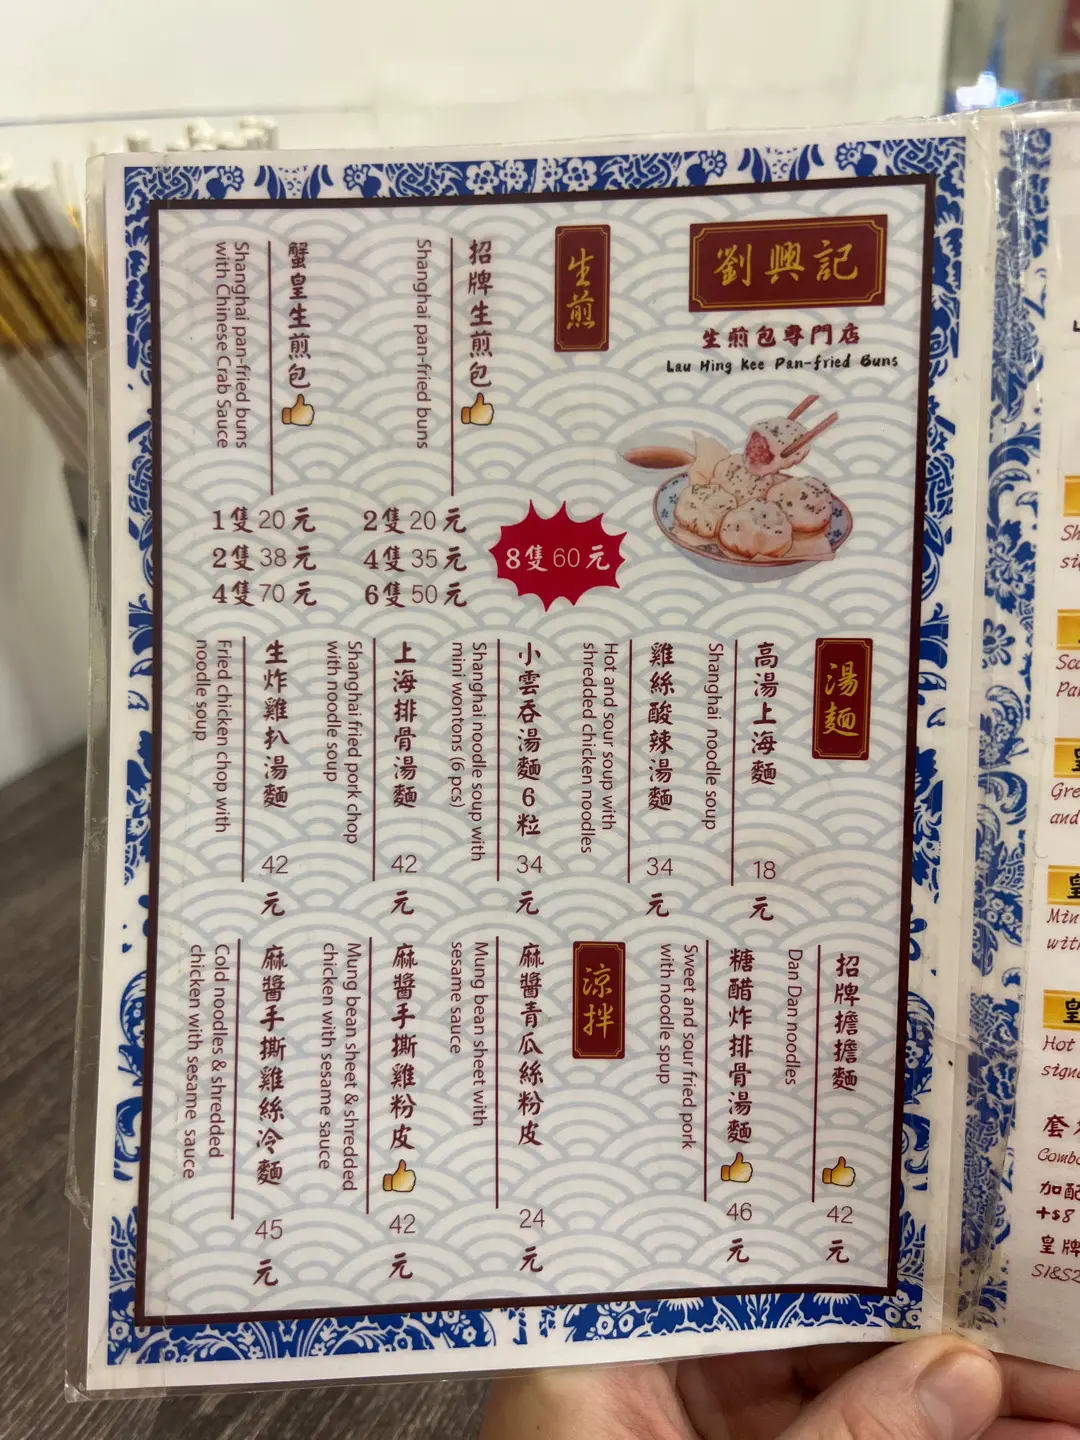 劉興記
生煎包專門店
Lau Hing Kee Pan-fried Buns
生煎
招牌生煎包
Shanghai pan-fried buns
2隻20元
4隻35元
6隻50元
8隻60元
蟹皇生煎包
Shanghai pan-fried buns
with Chinese Crab Sauce
1隻20元
2隻38元
4隻70元
湯麵
高湯上海麵
Shanghai noodle soup
18元
雞絲酸辣湯麵
Hot and sour soup with
shredded chicken noodles
34元
小雲吞湯麵6粒
Shanghai noodle soup with
mini wontons (6 pcs)
34元
上海排骨湯麵
Shanghai fried pork chop
with noodle soup
42元
生炸雞扒湯麵
Fried chicken chop with
noodle soup
42元
招牌擔擔麵
Dan Dan noodles
42元
糖醋炸排骨湯麵
Sweet and sour fried pork
with noodle spup
46元
涼拌
麻醬青瓜絲粉皮
Mung bean sheet with
sesame sauce
24元
麻醬手撕雞粉皮
Mung bean sheet & shredded
chicken with sesame sauce
42元
麻醬手撕雞絲冷麵
Cold noodles & shredded
chicken with sesame sauce
45元
Sh
Par
Gre
and
Min
with
Hot
signa
Combo
加配
+$8
皇牌
S1&S2